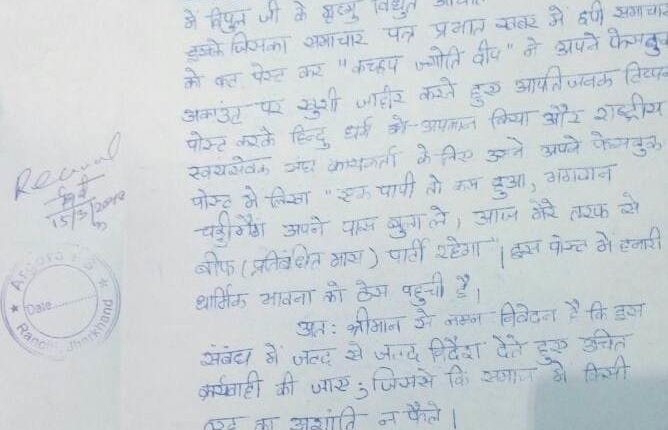 में विपुल जी के मृत्यु विद्युत
जिसका समाचार पत्र प्रभात खबर में छपी समाचार
को कट पेस्ट कर "कच्छप ज्योति दीप" ने अपने फेसबुक
अकाउंट पर खुशी जाहीर करते हुए आपतिजनक
पोस्ट करके हिन्दु धर्म को अपमान किया और राष्ट्रीय
स्वयंसेवक संघ कार्यकर्ता के लिए उसने अपने फेसबुक
पोस्ट में लिखा "एक पापी तो कम हुआ, भगवान
चड्डीगैंग अपने पास बुला ले, आज मेरे तरफ से
बीफ (प्रतिबंधित मास) पार्टी रहेगा"। इस पोस्ट में हमारी
धार्मिक भावना को ठेस पहुची है।
अत: श्रीमान से नम्र निवेदन है कि इस
संबंध में जल्द से जल्द निर्देश देते हुए उचित
कार्यवाही की जाए; जिससे कि समाज में किसी
तरह का अशांति न फैले।
Received
15/3/2018
Argora P.S
Date
Ranchi, Jharkhand